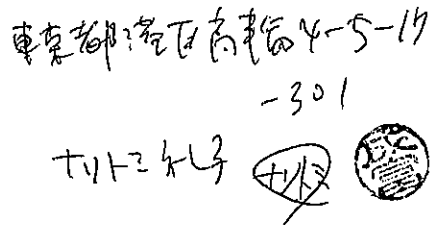 東京都港区高輪4-5-17
-301
ナリトミ礼子
ナリトミ